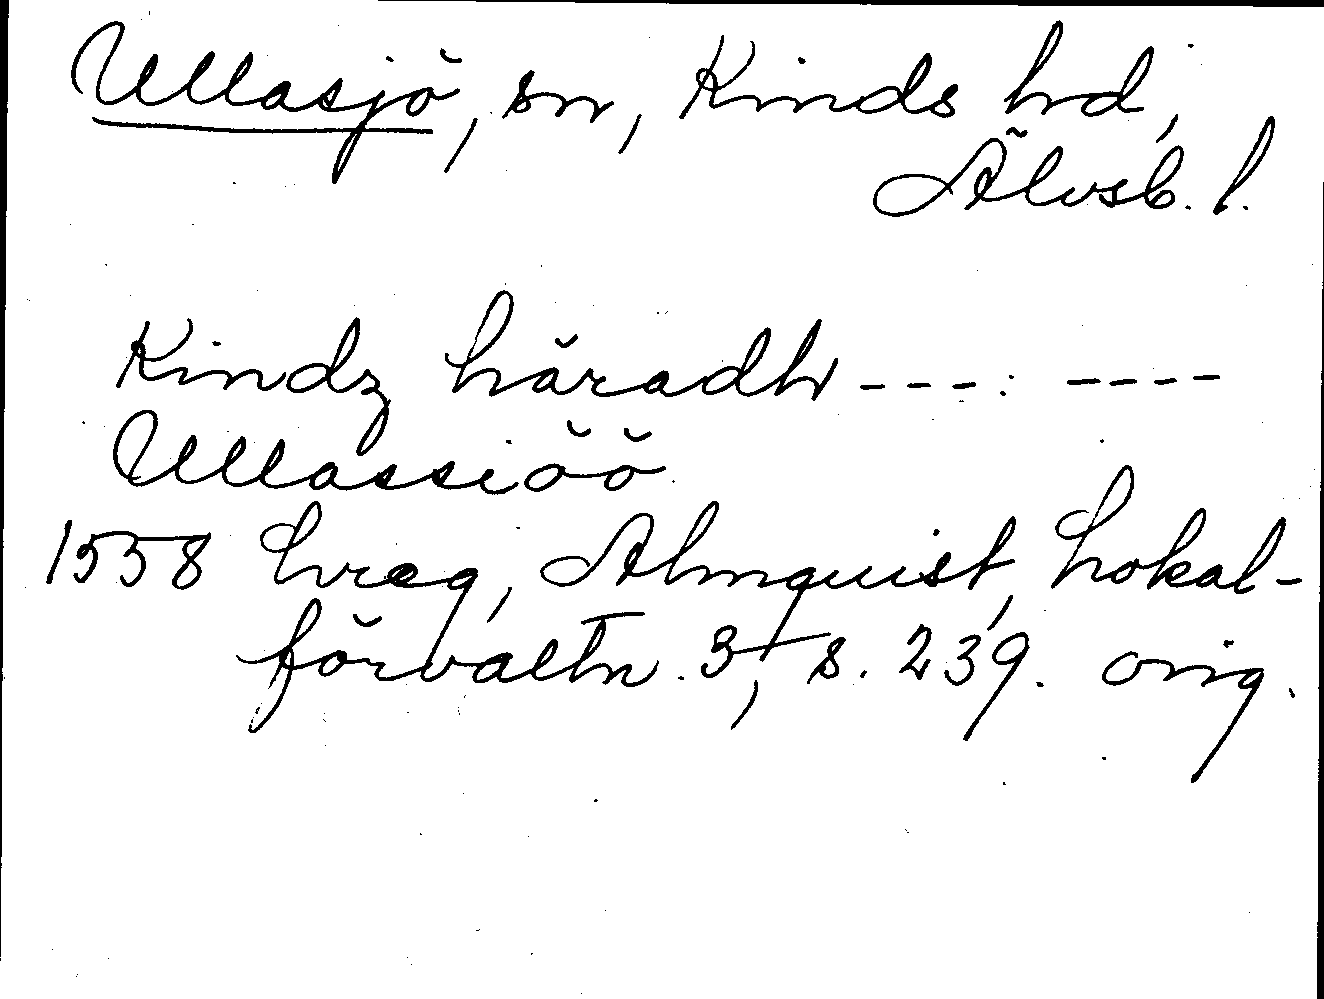 Ullasjö, sn, Kinds hd,
Älvsb. l.
Kindz häradh - - - : - - - -
Ullassiöö
1558 hreg, Almquist, Lokal-
förvaltn. 3, s. 239. orig.